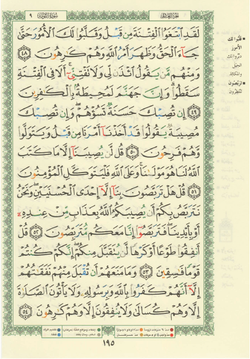 لَقَدِ ابْتَغَوُا الْفِتْنَةَ مِن قَبْلُ وَقَلَّبُوا لَكَ الْأُمُورَ حَتَّىٰ
جَاءَ الْحَقُّ وَظَهَرَ أَمْرُ اللَّهِ وَهُمْ كَارِهُونَ ٤٨
وَمِنْهُم مَّن يَقُولُ ائْذَن لِّي وَلَا تَفْتِنِّي أَلَا فِي الْفِتْنَةِ
سَقَطُوا وَإِنَّ جَهَنَّمَ لَمُحِيطَةٌ بِالْكَافِرِينَ
٤٩ إِن تُصِبْكَ حَسَنَةٌ تَسُؤْهُمْ وَإِن تُصِبْكَ
مُصِيبَةٌ يَقُولُوا قَدْ أَخَذْنَا أَمْرَنَا مِن قَبْلُ وَيَتَوَلَّوا
وَّهُمْ فَرِحُونَ ٥٠ قُل لَّن يُصِيبَنَا إِلَّا مَا كَتَبَ
اللَّهُ لَنَا هُوَ مَوْلَانَا وَعَلَى اللَّهِ فَلْيَتَوَكَّلِ الْمُؤْمِنُونَ
٥١ قُلْ هَلْ تَرَبَّصُونَ بِنَا إِلَّا إِحْدَى الْحُسْنَيَيْنِ وَنَحْنُ
نَتَرَبَّصُ بِكُمْ أَن يُصِيبَكُمُ اللَّهُ بِعَذَابٍ مِّنْ عِندِهِ
أَوْ بِأَيْدِينَا فَتَرَبَّصُوا إِنَّا مَعَكُم مُّتَرَبِّصُونَ ٥٢ قُلْ
أَنفِقُوا طَوْعًا أَوْ كَرْهًا لَّن يُتَقَبَّلَ مِنكُمْ إِنَّكُمْ كُنتُمْ
قَوْمًا فَاسِقِينَ ٥٣ وَمَا مَنَعَهُمْ أَن تُقْبَلَ مِنْهُمْ نَفَقَاتُهُمْ
إِلَّا أَنَّهُمْ كَفَرُوا بِاللَّهِ وَبِرَسُولِهِ وَلَا يَأْتُونَ الصَّلَاةَ
إِلَّا وَهُمْ كُسَالَىٰ وَلَا يُنفِقُونَ إِلَّا وَهُمْ كَارِهُونَ ٥٤
١٩٥